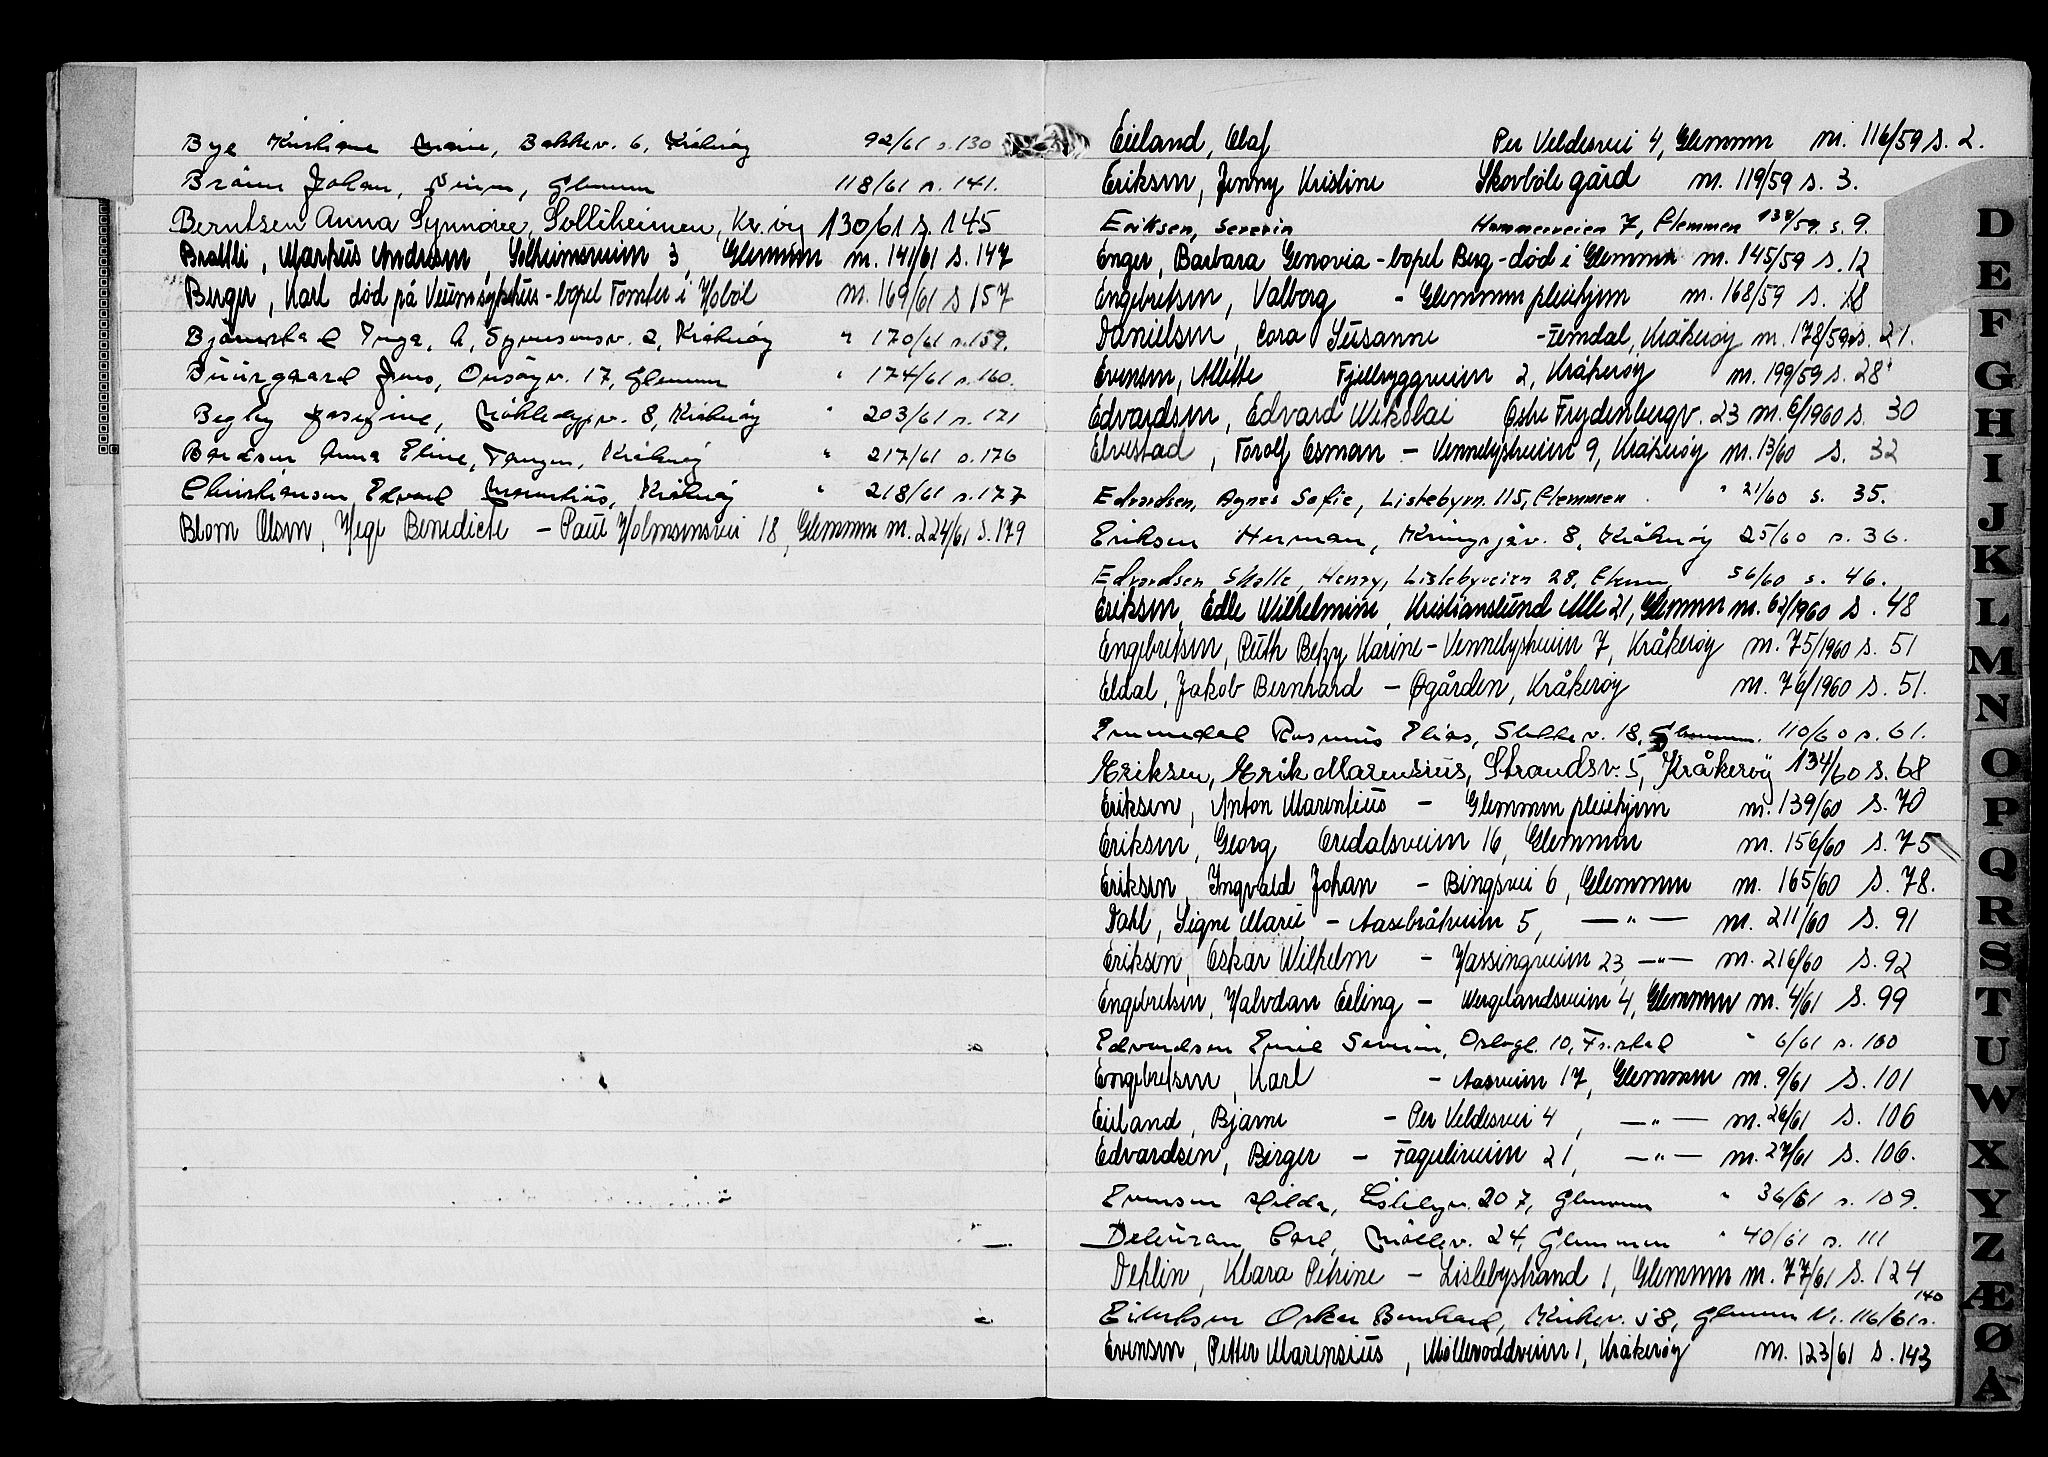 Bye Kristiane Marie, Bakkev. 6, Kråkerøy 92/61 s. 130
Brånn Johan, Glemmen 118/61 s. 141.
Berntsen Anna Synnöve, Solliheimen, Kr.öy 130/61 s. 145
Bratlli, Markus Andreasen, Solheimsveien 3, Glemmen nr. 141/61 s. 147
Berger, Karl död på Veum sykehus - bopel Tomter i Hobøl nr. 169/61 s 157
Bjørnstad Inga, A, Symesonsv. 2, Kråkerøy " 170/61 s. 159.
Buurgaard Jens, Onsøyv. 17, Glemmen " 174/61 s. 160.
Begby Josefine, Kråkerøy " 203/61 s. 171
Bardsen Anna Eline, Tangen, Kråkerøy " 217/61 s. 176
Christiansen Edvard Marentius, Kråkerøy " 218/61 s. 177
Blom Olsen, Hege Benedicte - Paul Holmsensvei 18, Glemmen nr. 224/61 s. 179
Eieland, Olaf Per Veldesvei 4, Glemmen nr. 116/59 s. 2.
Eriksen, Jenny Kristine Skovböle gård nr. 119/59 s. 3.
Eriksen, Severin Hammerveien 7, Glemmen 138/59. s. 9.
Enger, Barbara Genovia - bopel Berg - död i Glemmen nr. 145/59 s. 12
Engebretsen, Valborg - Glemmen pleiehjem nr. 168/59 s. 18
Danielsen, Cora Susanne - Femdal, Kråkerøy nr. 178/59 s. 21.
Evensen, Alette Fjellryggveien 2, Kråkerøy nr. 199/59 s. 28
Edvardsen, Edvard Nikolai Østre Frydenbergv. 23 nr. 6/1960 s. 30
Elvestad, Torolf Osman - Vennelystveien 9, Kråkerøy nr. 13/60 s. 32
Edvardsen, Agnes Sofie, Lislebyvn. 115, Glemmen. " 21/60 s. 35.
Eriksen Herman, Kringsjåv. 8, Kråkerøy 25/60 s. 36.
Edvardsen Skolle, Henry, Lislebyveien 28, Glemm. 56/60 s. 46.
Eriksen, Edle Wilhelmine, Kristianslund Alle 21, Glemmen nr. 62/1960 s. 48
Engebretsen, Ruth Betzy Karine - Vennelystveien 7, Kråkerøy nr. 75/1960 s. 51
Eldal, Jakob Bernhard - Øgården, Kråkerøy nr. 76/1960 s. 51.
Emmedal Rasmus Elias, Slettev. 18, Glemmen. 110/60 s. 61.
Eriksen, Erik Marensius, Strandsv. 5, Kråkeröy 134/60 s. 68
Eriksen, Anton Marentius - Glemmen pleiehjem nr. 139/60 s. 70
Eriksen, Georg Oredalsveien 16, Glemmen nr. 156/60 s. 75
Eriksen, Ingvald Johan - Bingsvei 6, Glemmen nr. 165/60 s. 78.
Dahl, Signe Marie - Aasebråtveien 5, — " — nr. 211/60 s. 91
Eriksen, Oskar Wilhelm - Hassingveien 23, — " — nr. 216/60 s. 92
Engebretsen, Halvdan Erling - Wergelandsveien 4, Glemmen nr. 4/61 s. 99
Edvardsen Emil Severin, Oslogt. 10, Fr.stad " 6/61 s. 100
Engebretsen, Karl - Aasveien 17, Glemmen nr. 9/61 s. 101
Eieland, Bjarne - Per Veldesvei 4, — " — nr. 26/61 s. 106
Edvardsen, Birger - Fagerliveien 21, — " — nr. 27/61 s. 106.
Evensen Hilda, Lislebyv. 207, Glemmen " 36/61 s. 109.
Deleuran Carl, Møllev. 24, Glemmen " 40/61 s. 111
Dehlin, Klara Petrine - Lislebystrand 1, Glemmen nr. 77/61 s. 124
Eilertsen Oskar Bernhard, Kirkev. 58, Glemmen Nr. 116/61 s. 140
Evensen, Petter Marensius, Mölleroddveien 1, Kråkerøy nr. 123/61 s. 143
D
E
F
G
H
I
J
K
L
M
N
O
P
Q
R
S
T
U
W
X
Y
Z
Æ
Ø
A